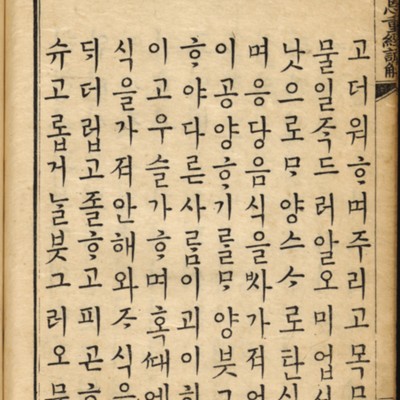 恩重經諺解
고더워ᄒᆞ며주리고목
물일즉드러알오미업
낫으로ᄆᆞ양스ᄉᆞ로탄식
며응당음식을ᄡᅡ가져
이공양ᄒᆞ기ᄅᆞᆯᄆᆞ양붓그
ᄒᆞ야다른사ᄅᆞᆷ이괴이히
이고우슬가ᄒᆞ며혹ᄣᅢ에
식을가져안해와ᄌᆞ식은
듸더럽고졸ᄒᆞ고피곤ᄒᆞ
슈고롭거늘붓그러오